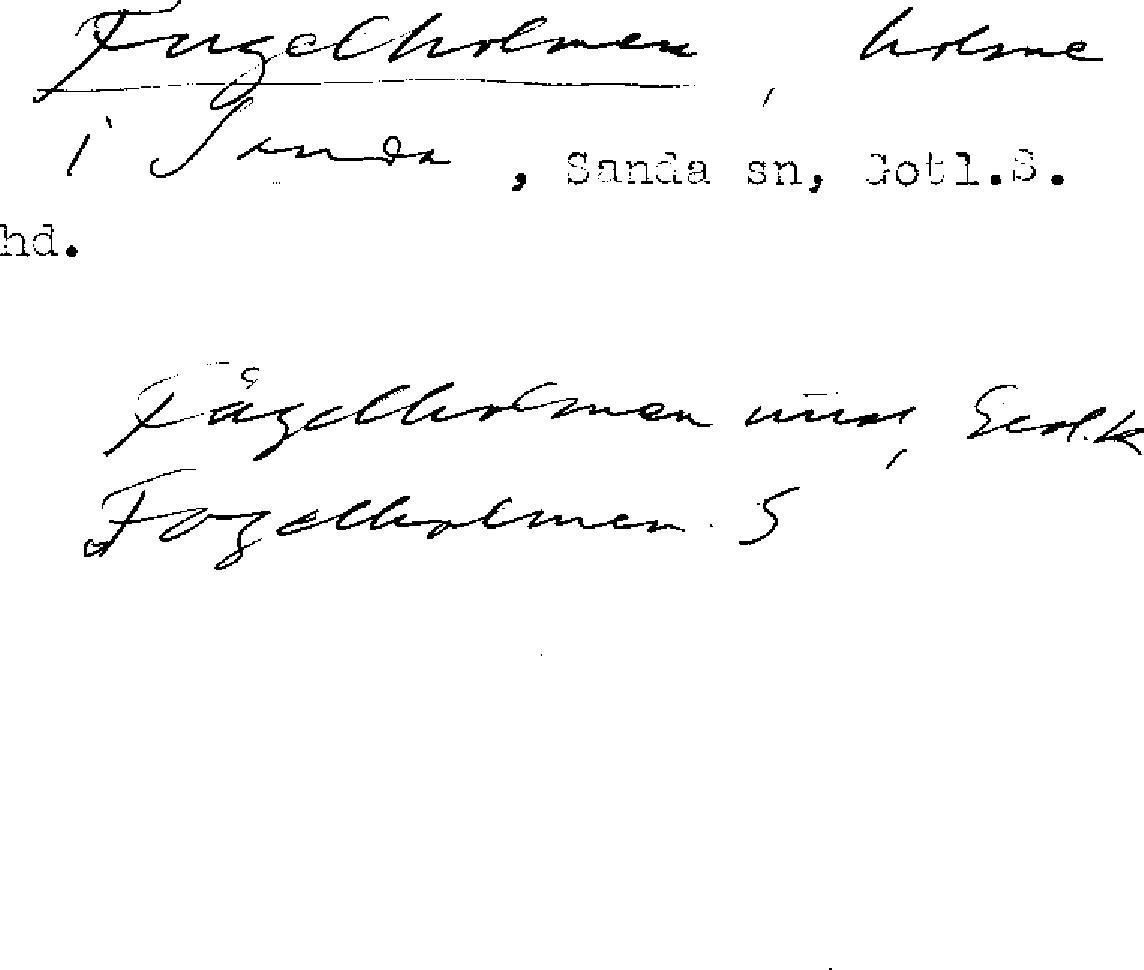 Fugelholmen, holme
i Sanda, Sanda sn, Gotl.S.
hd.
Fågelholmen
Fogelholmen S